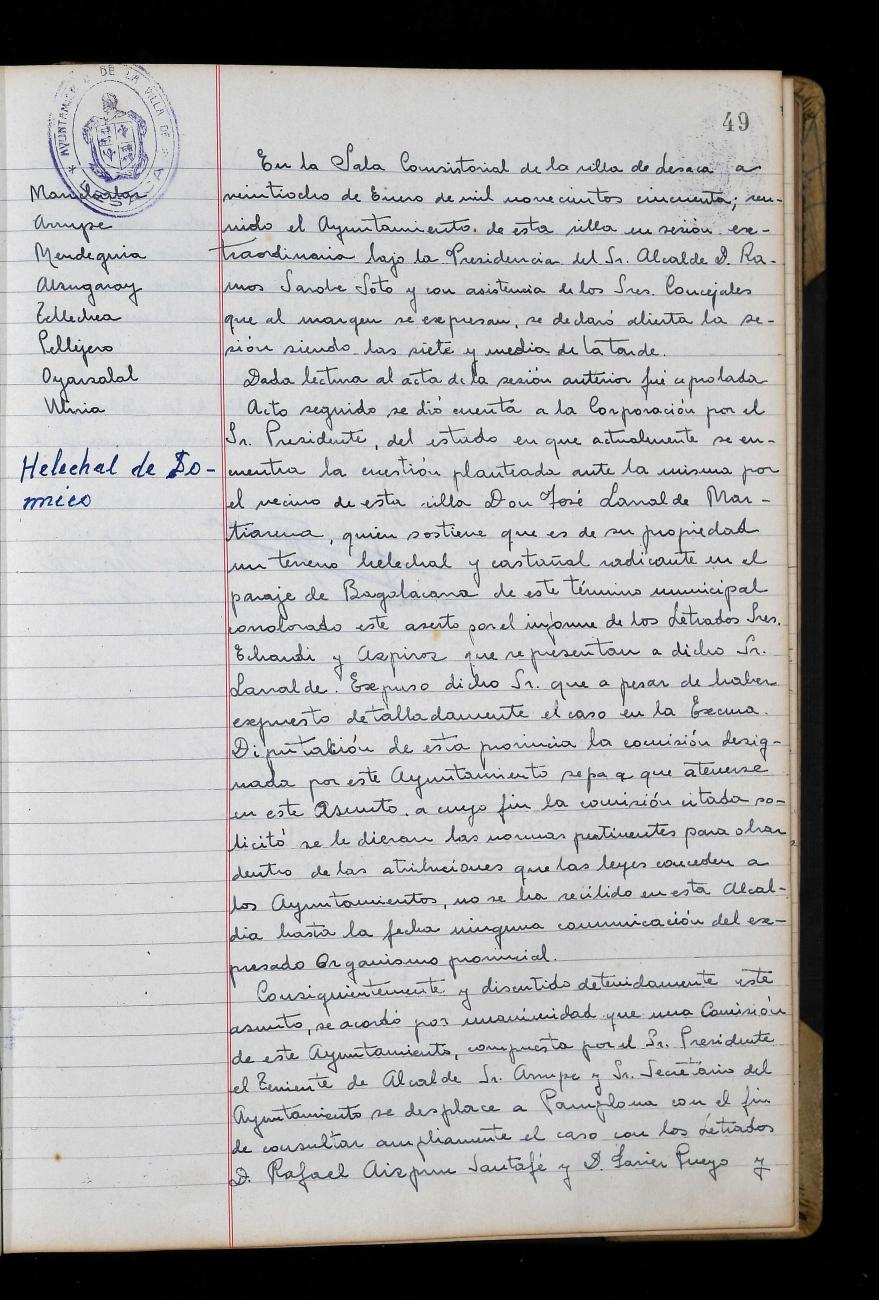 49
AYUNTAMIENTO DE LA VILLA DE
Arrupe
Mendeguia
Alzugaray
Tellechea
Pellejero
Oyarzabal
Helechal de Do-
mico
En la Sala Consistorial de la villa de Lesaca a
veintiocho de Enero de mil novecientos cincuenta; reu-
nido el Ayuntamiento de esta villa en sesión ex-
traordinaria bajo la Presidencia del Sr. Alcalde D. Ra-
mos Sarobe Soto y con asistencia de los Sres. Concejales
que al margen se expresan, se declaró abierta la se-
sión siendo las siete y media de la tarde.
Dada lectura al acta de la sesión anterior fué aprobada
Acto seguido se dió cuenta a la Corporación por el
Sr. Presidente, del estado en que actualmente se en-
cuentra la cuestión planteada ante la misma por
el vecino de esta villa Don José Larralde Mar-
tiarena, quien sostiene que es de su propiedad
un terreno helechal y castañal radicante en el
paraje de Bagolacana de este término municipal
corroborado este aserto por el informe de los Letrados Sres.
Echandi y Azpiroz que representan a dicho Sr.
Larralde. Expuso dicho Sr. que a pesar de haber
expuesto detalladamente el caso en la Excma.
Diputación de esta provincia la comisión desig-
nada por este Ayuntamiento sepa a que atenerse
en este Asunto. a cuyo fin la comisión citada so-
licitó se le dieran las normas pertinentes para obrar
dentro de las atribuciones que las leyes conceden a
los Ayuntamientos, no se ha recibido en esta Alcal-
dia hasta la fecha ninguna comunicación del ex-
presado Organismo provincial.
Consiguientemente y discutido detenidamente este
asunto, se acordó por unanimidad que una Comisión
de este Ayuntamiento, compuesta por el Sr. Presidente
el Teniente de Alcalde Sr. Arrupe y Sr. Secretario del
Ayuntamiento se desplace a Pamplona con el fin
de consultar ampliamente el caso con los Letrados
D. Rafael Aizpun Santafé y D. Javier Pueyo y